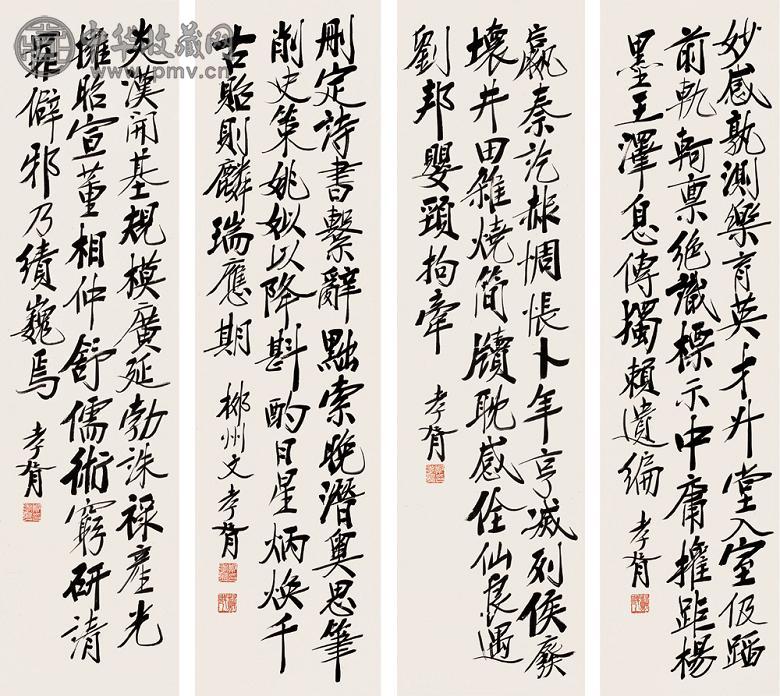 妙感孰測樂育英才升堂入室伋蹈
前軌軻稟絕識標示中庸攉距楊
墨王澤息傳獨賴遺編 孝胥
嬴秦訖赧惆悵卜年亨滅列侯廢
壞井田雜燒簡牘耽感佺仙良遇
劉邦嬰頸拘牽 孝胥
刪定詩書繫辭黜索晚潛奧思筆
削史策姚姒以降斟酌日星炳煥千
古貽則麟瑞應期 柳州文孝胥
炎漢開基規模廣延勃誅祿產光
擁昭宣董相仲舒儒術窮研請
罷僻邪乃績巍焉 孝胥
中华收藏网
www.pmv.cn